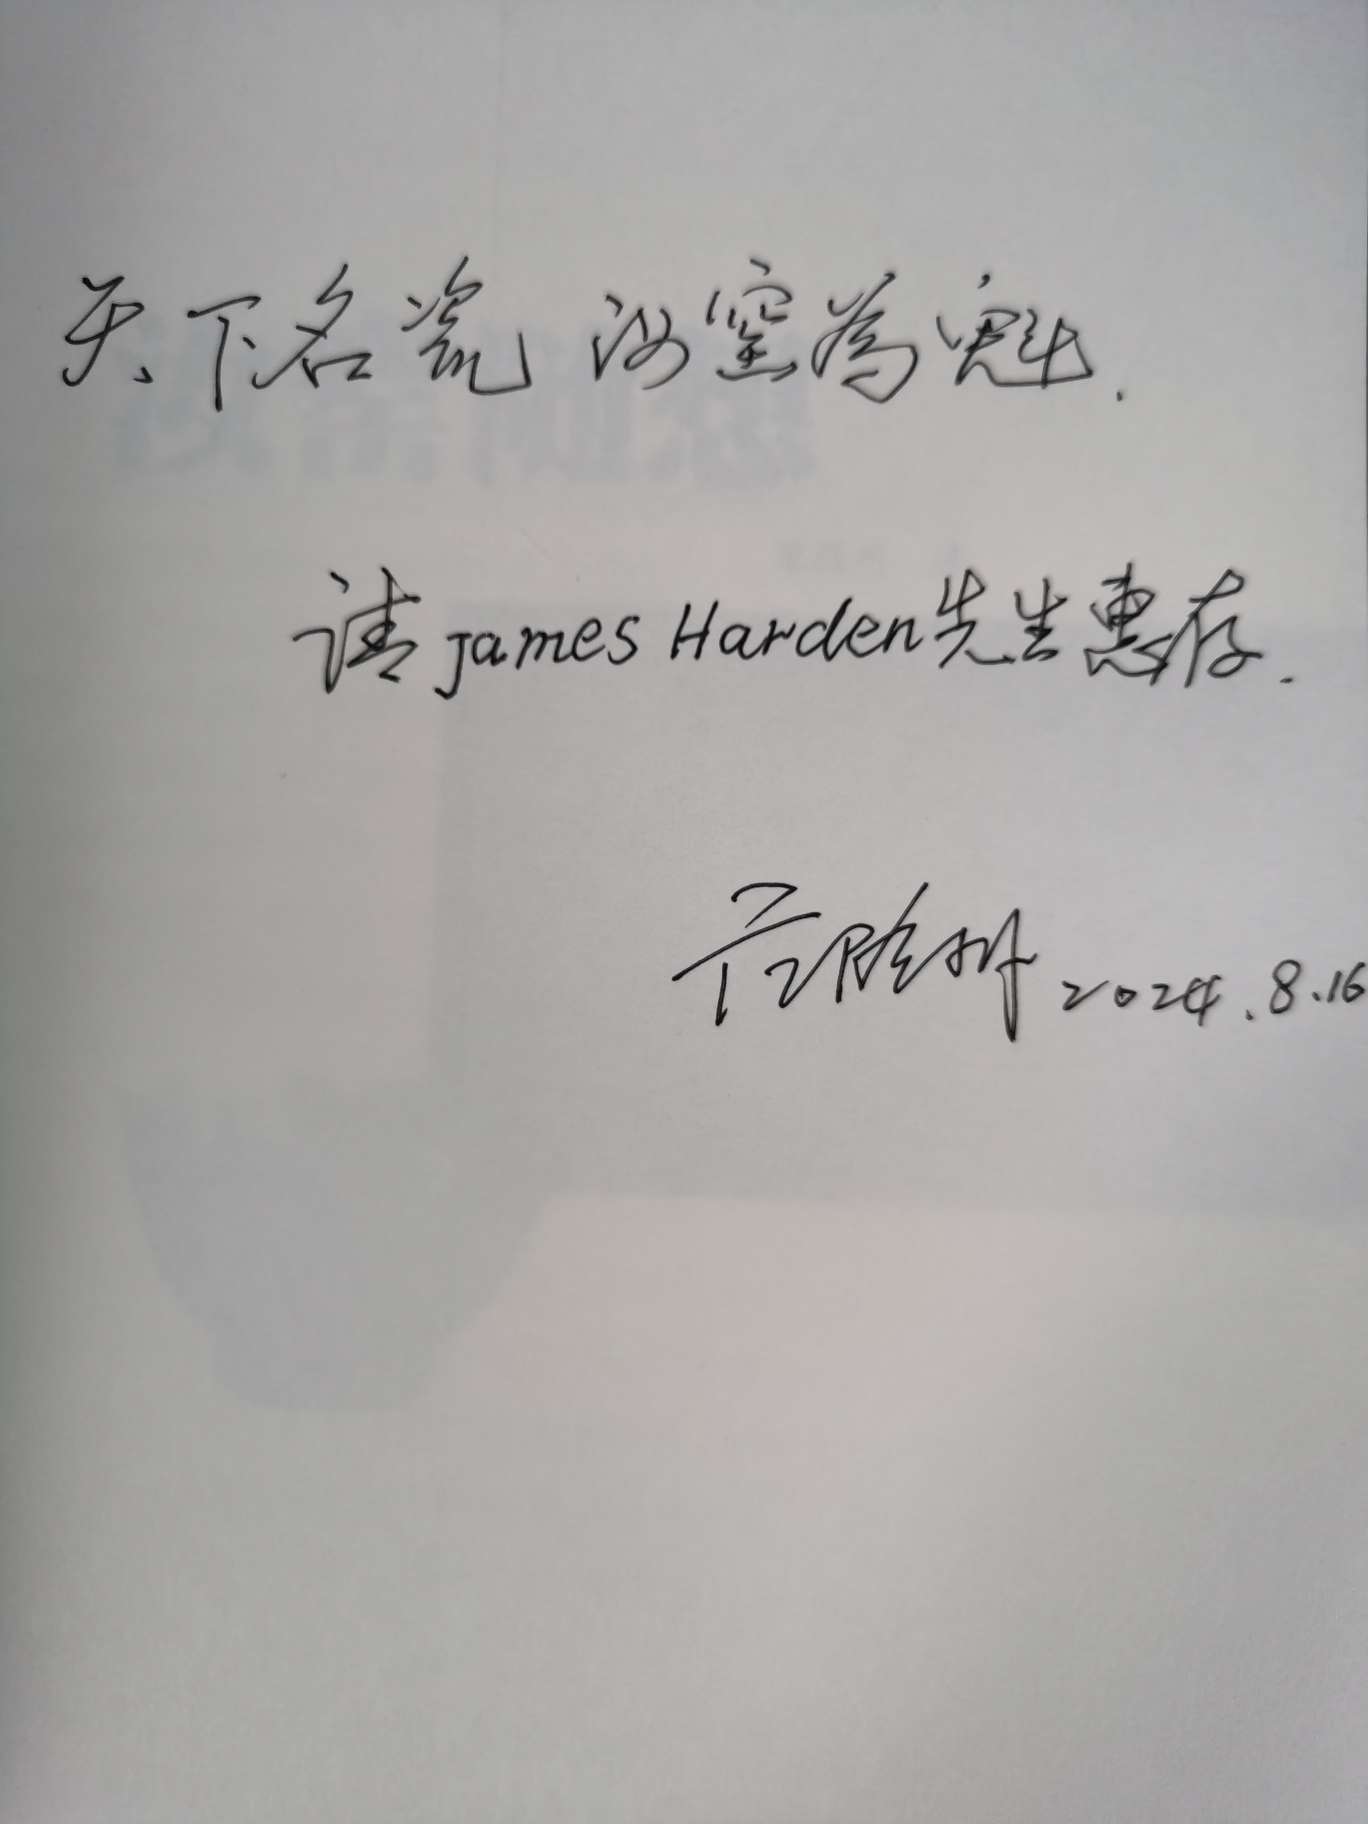 天下名瓷 汝窑為魁.
请 James Harden 先生惠存.
2024.8.16